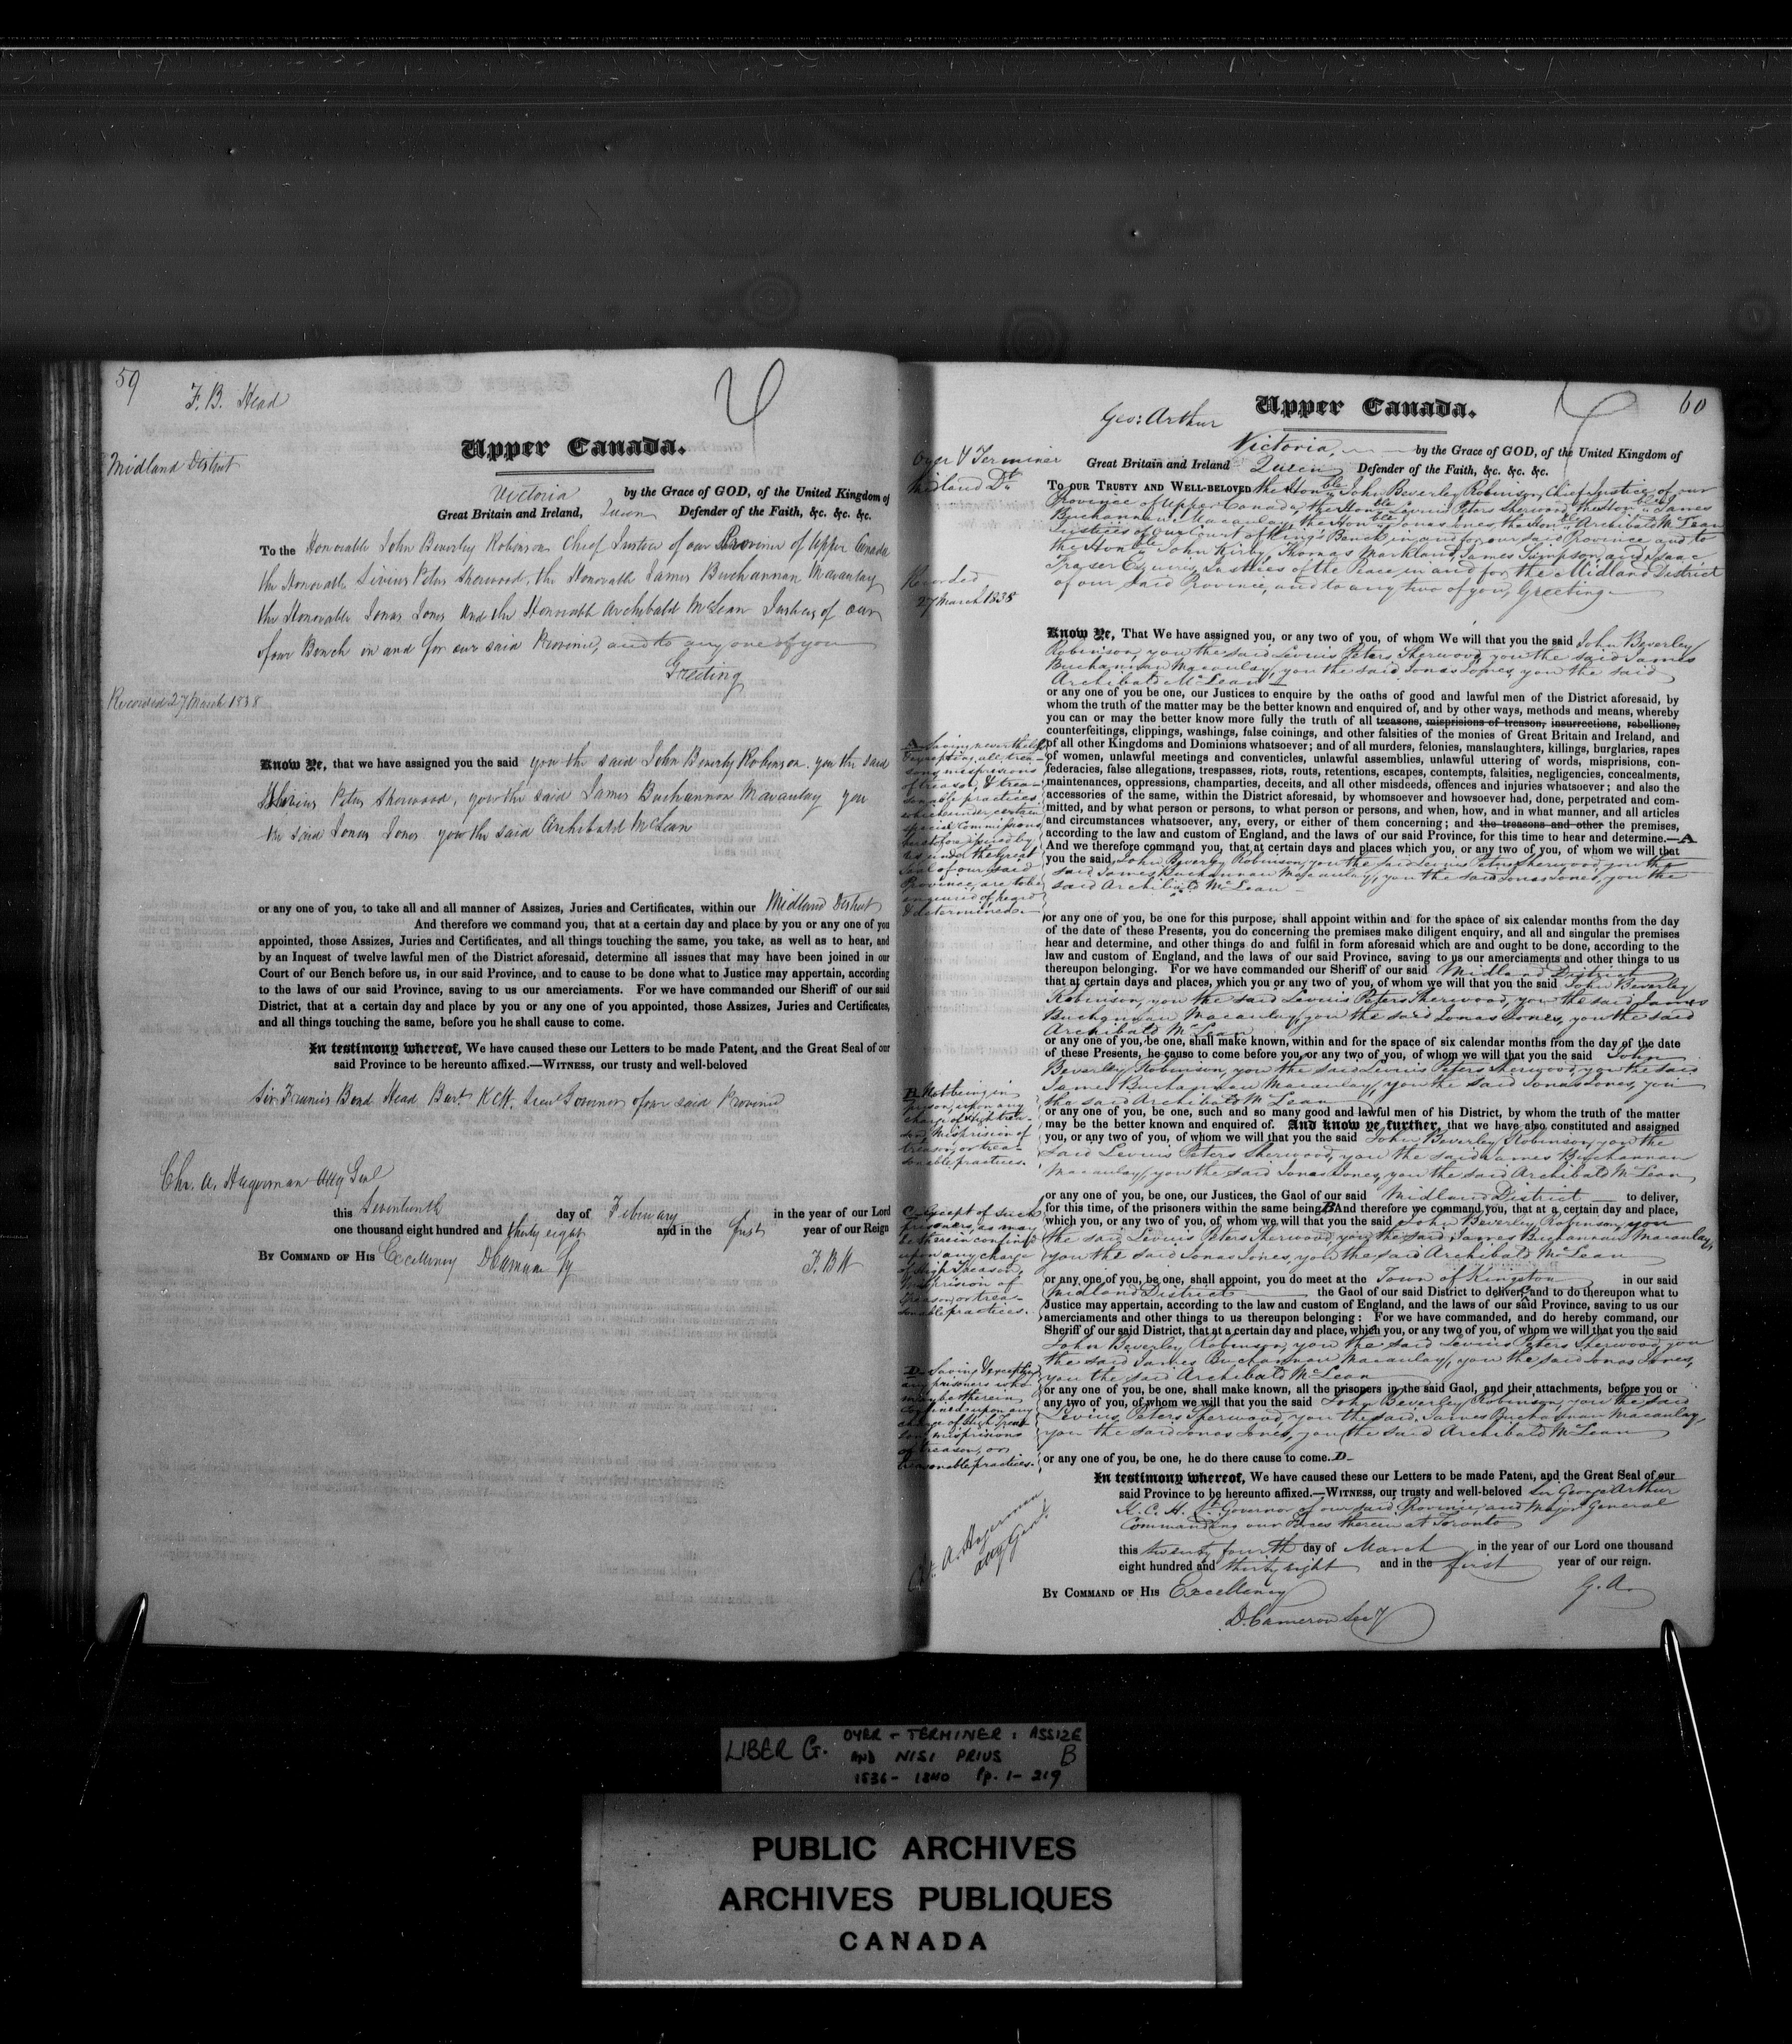 59
F. B. Head
Upper Canada.
Midland District
Victoria by the Grace of GOD, of the United Kingdom of
Great Britain and Ireland, Queen Defender of the Faith, &c. &c. &c.
To the Honorable John Beverley Robinson Chief Justice of our Province of Upper Canada
the Honorable Livius Peters Sherwood, the Honorable James Buchannan Macaulay
the Honorable Jonas Jones and the Honorable Archibald McLean Justices of our
of our Bench in and for our said Province, and to any one of you
Greeting
Recorded 27 March 1838
Know Ye, that we have assigned you the said you the said John Beverly Robinson. you the said
Livius Peters Sherwood, you the said James Buchannan Macaulay you
the said Jonas Jones you the said Archibald McLean
or any one of you, to take all and all manner of Assizes, Juries and Certificates, within our Midland District
And therefore we command you, that at a certain day and place by you or any one of you
appointed, those Assizes, Juries and Certificates, and all things touching the same, you take, as well as to hear, and
by an Inquest of twelve lawful men of the District aforesaid, determine all issues that may have been joined in our
Court of our Bench before us, in our said Province, and to cause to be done what to Justice may appertain, according
to the laws of our said Province, saving to us our amerciaments. For we have commanded our Sheriff of our said
District, that at a certain day and place by you or any one of you appointed, those Assizes, Juries and Certificates,
and all things touching the same, before you he shall cause to come.
In testimony whereof, We have caused these our Letters to be made Patent, and the Great Seal of our
said Province to be hereunto affixed.—WITNESS, our trusty and well-beloved
Sir Francis Bond Head Bart. KCH. Lieut Governor of our said Province
Chr. A. Hagerman Atty Genl
this Seventeenth day of February in the year of our Lord
one thousand eight hundred and thirty eight and in the first year of our Reign
BY COMMAND OF HIS Excellency D Cameron Sy
F. B H
60
Upper Canada.
Geo: Arthur
Oyer & Terminer
Midland Dt.
Victoria, by the Grace of GOD, of the United Kingdom of
Great Britain and Ireland Queen Defender of the Faith, &c. &c. &c.
TO OUR TRUSTY AND WELL-BELOVED the Honble John Beverley Robinson, Chief Justice of our
Province of Upper Canada, the Honble Levius Peters Sherwood, the Honble James
Buchannan Macaulay, the Honble Jonas Jones, the Honble Archibald McLean
Justices of our Court of King's Bench in and for our said Province and to
the Honble John Kirby, Thomas Markland, James Simpson, and Isaac
Fraser Esquires, Justices of the Peace in and for the Midland District
of our said Province, and to any two of you, Greeting
Recorded
27 March 1838
Know Ye, That We have assigned you, or any two of you, of whom We will that you the said John Beverley
Robinson, you the said Levius Peters Sherwood, you the said James
Buchannan Macaulay, you the said Jonas Jones, you the said
Archibald McLean
or any one of you be one, our Justices to enquire by the oaths of good and lawful men of the District aforesaid, by
whom the truth of the matter may be the better known and enquired of, and by other ways, methods and means, whereby
you can or may the better know more fully the truth of all treasons, misprisions of treason, insurrections, rebellions,
counterfeitings, clippings, washings, false coinings, and other falsities of the monies of Great Britain and Ireland, and
of all other Kingdoms and Dominions whatsoever; and of all murders, felonies, manslaughters, killings, burglaries, rapes
of women, unlawful meetings and conventicles, unlawful assemblies, unlawful uttering of words, misprisions, con-
federacies, false allegations, trespasses, riots, routs, retentions, escapes, contempts, falsities, negligencies, concealments,
maintenances, oppressions, champarties, deceits, and all other misdeeds, offences and injuries whatsoever; and also the
accessories of the same, within the District aforesaid, by whomsoever and howsoever had, done, perpetrated and com-
mitted, and by what person or persons, to what person or persons, and when, how, and in what manner, and all articles
and circumstances whatsoever, any, every, or either of them concerning; and the treasons and other the premises,
according to the law and custom of England, and the laws of our said Province, for this time to hear and determine.—A
And we therefore command you, that at certain days and places which you, or any two of you, of whom we will that
you the said John Beverley Robinson, you the said Levius Peters Sherwood, you the
said James Buchannan Macaulay, you the said Jonas Jones, you the
said Archibald McLean
A Saving nevertheless
& excepting all trea-
sons misprisions
of treason, & trea-
sonable practices
which under certain
special Commissions
heretofore issued by
us under the Great
Seal of our said
Province, are to be
enquired of heard
& determined.
or any one of you, be one for this purpose, shall appoint within and for the space of six calendar months from the day
of the date of these Presents, you do concerning the premises make diligent enquiry, and all and singular the premises
hear and determine, and other things do and fulfil in form aforesaid which are and ought to be done, according to the
law and custom of England, and the laws of our said Province, saving to us our amerciaments and other things to us
thereupon belonging. For we have commanded our Sheriff of our said Midland District
that at certain days and places, which you or any two of you, of whom we will that you the said John Beverley
Robinson, you the said Levius Peters Sherwood, you the said James
Buchannan Macaulay, you the said Jonas Jones, you the said
Archibald McLean
or any one of you, be one, shall make known, within and for the space of six calendar months from the day of the date
of these Presents, he cause to come before you, or any two of you, of whom we will that you the said John
Beverley Robinson, you the said Levius Peters Sherwood, you the said
James Buchannan Macaulay, you the said Jonas Jones, you
the said Archibald McLean
or any one of you, be one, such and so many good and lawful men of his District, by whom the truth of the matter
may be the better known and enquired of. And know ye further, that we have also constituted and assigned
you, or any two of you, of whom we will that you the said John Beverley Robinson, you the
said Levius Peters Sherwood, you the said James Buchannan
Macaulay, you the said Jonas Jones, you the said Archibald McLean
B Not being in
prison, upon any
charge of High trea-
son, Misprision of
treason, or trea-
sonable practices.
or any one of you, be one, our Justices, the Gaol of our said Midland District to deliver,
for this time, of the prisoners within the same being B And therefore we command you, that at a certain day and place,
which you, or any two of you, of whom we will that you the said John Beverley Robinson, you
the said Levius Peters Sherwood, you the said James Buchannan Macaulay,
you the said Jonas Jones, you the said Archibald McLean
C Except of such
prisoners, as may
be therein confined
upon any charge
of High Treason,
Misprision of
Treason, or trea-
sonable practices.
or any one of you, be one, shall appoint, you do meet at the Town of Kingston in our said
Midland District the Gaol of our said District to deliver C and to do thereupon what to
Justice may appertain, according to the law and custom of England, and the laws of our said Province, saving to us our
amerciaments and other things to us thereupon belonging: For we have commanded, and do hereby command, our
Sheriff of our said District, that at a certain day and place, which you, or any two of you, of whom we will that you the said
John Beverley Robinson, you the said Levius Peters Sherwood, you
the said James Buchannan Macaulay, you the said Jonas Jones,
you the said Archibald McLean
or any one of you, be one, shall make known, all the prisoners in the said Gaol, and their attachments, before you or
any two of you, of whom we will that you the said John Beverley Robinson, you the said
Levius Peters Sherwood, you the said James Buchannan Macaulay,
you the said Jonas Jones, you the said Archibald McLean
D Saving & excepting
any prisoners who
may be therein
confined upon any
charge of High Trea-
son, misprisions
of treason, or
treasonable practices.
or any one of you, be one, he do there cause to come. D
In testimony whereof, We have caused these our Letters to be made Patent, and the Great Seal of our
said Province to be hereunto affixed.—WITNESS, our trusty and well-beloved Sir George Arthur
K. C. H. Lt. Governor of our said Province, and Major General
Commanding our Forces therein at Toronto
this twenty fourth day of March in the year of our Lord one thousand
eight hundred and thirty eight and in the first year of our reign.
A. Hagerman
Atty Genl
G. A.
BY COMMAND OF HIS Excellency
D. Cameron Secy
LIBER G. OYER + TERMINER: ASSIZE
AND NISI PRIUS B
1836-1840 Pp. 1-219
PUBLIC ARCHIVES
ARCHIVES PUBLIQUES
CANADA